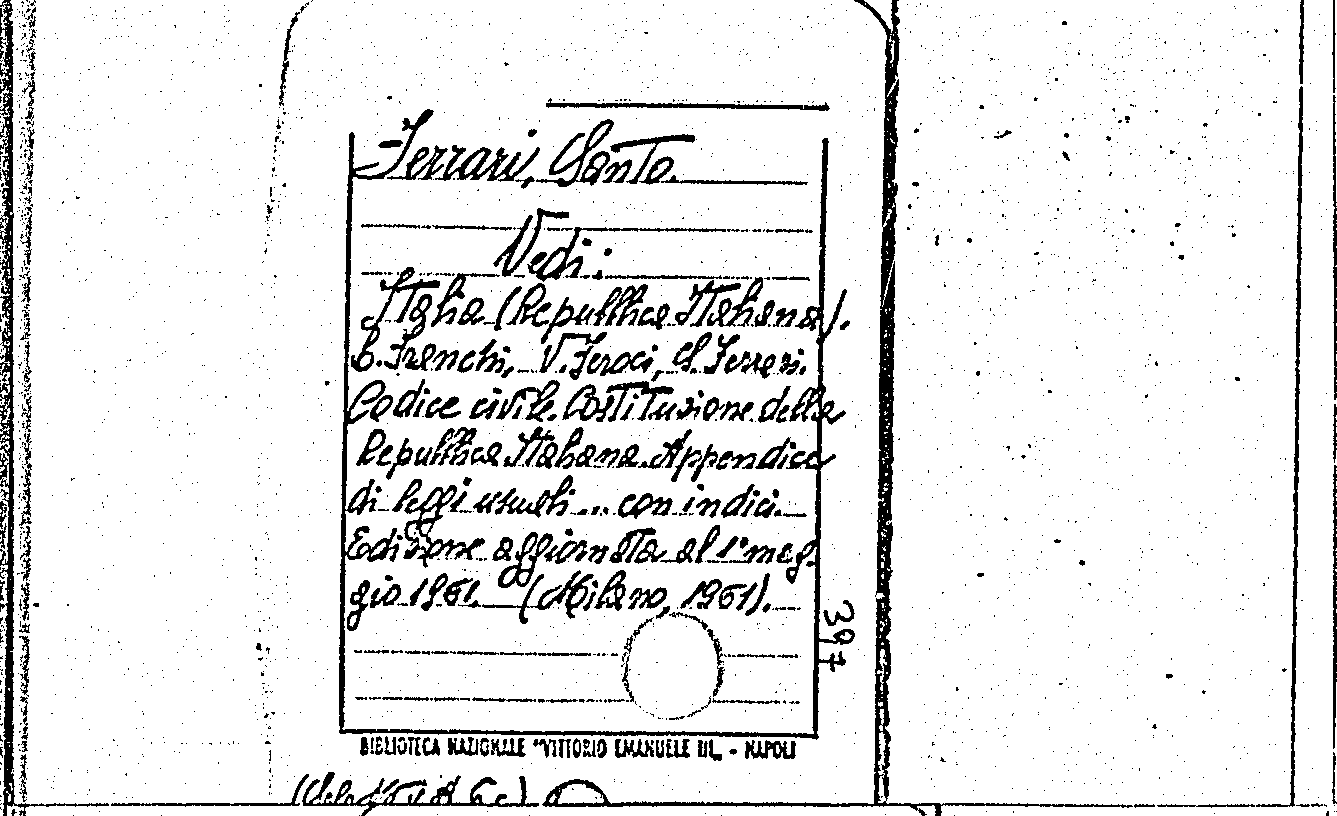 Ferrari, Santo.
Vedi:
Italia (Repubblica Italiana).
L. Franchi, V. Feroci, S. Ferrari.
Codice civile. Costituzione della
Repubblica Italiana. Appendice
di leggi usuali... con indici.
Edizione aggiornata al 1° mag-
gio 1961. (Milano, 1961).
397
BIBLIOTECA NAZIONALE "VITTORIO EMANUELE III„ - NAPOLI